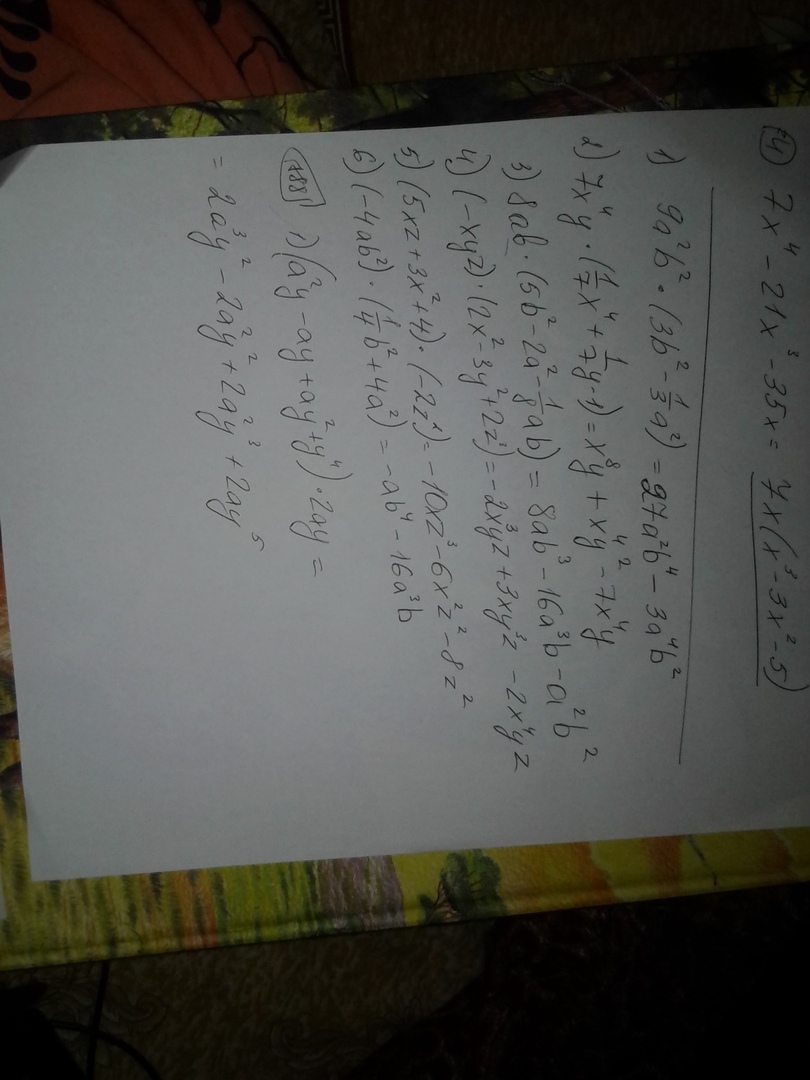 ④ 7x⁴ - 21x³ - 35x = 7x(x³ - 3x² - 5)
1) 9a²b² · (3b² - 1/3 a²) = 27a²b⁴ - 3a⁴b²
2) 7x⁴y · (1/7 x⁴ + 1/7 y - 1) = x⁸y + x⁴y² - 7x⁴y
3) 8ab · (5b² - 2a² - 1/8 ab) = 8ab³ - 16a³b - a²b²
4) (-xyz) · (2x² - 3y² + 2z³) = -2x³yz + 3xy³z - 2x⁴yz
5) (5xz + 3x² + 4) · (-2z²) = -10xz³ - 6x²z² - 8z²
6) (-4ab²) · (1/4 b² + 4a²) = -ab⁴ - 16a³b
788 1) (a²y - ay + ay² + y⁴) · 2ay =
= 2a³y² - 2a²y² + 2a²y³ + 2ay⁵